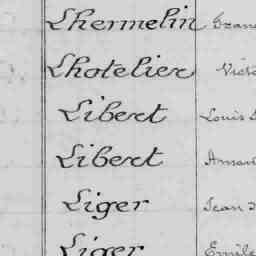 Lhermelin
Lhotelier Victo
Libert Louis
Libert
Liger Jean
Liger Emile